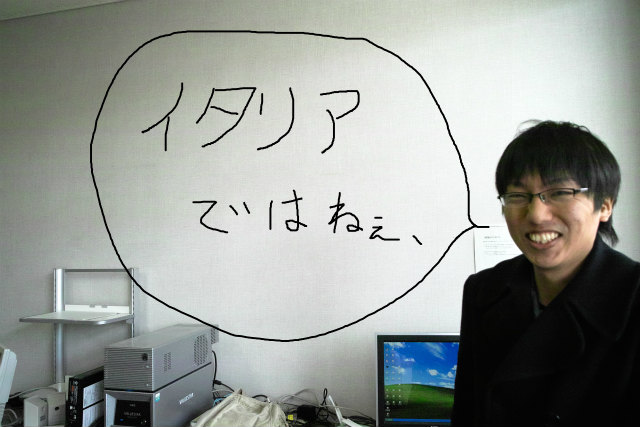 イタリア
ではねぇ、